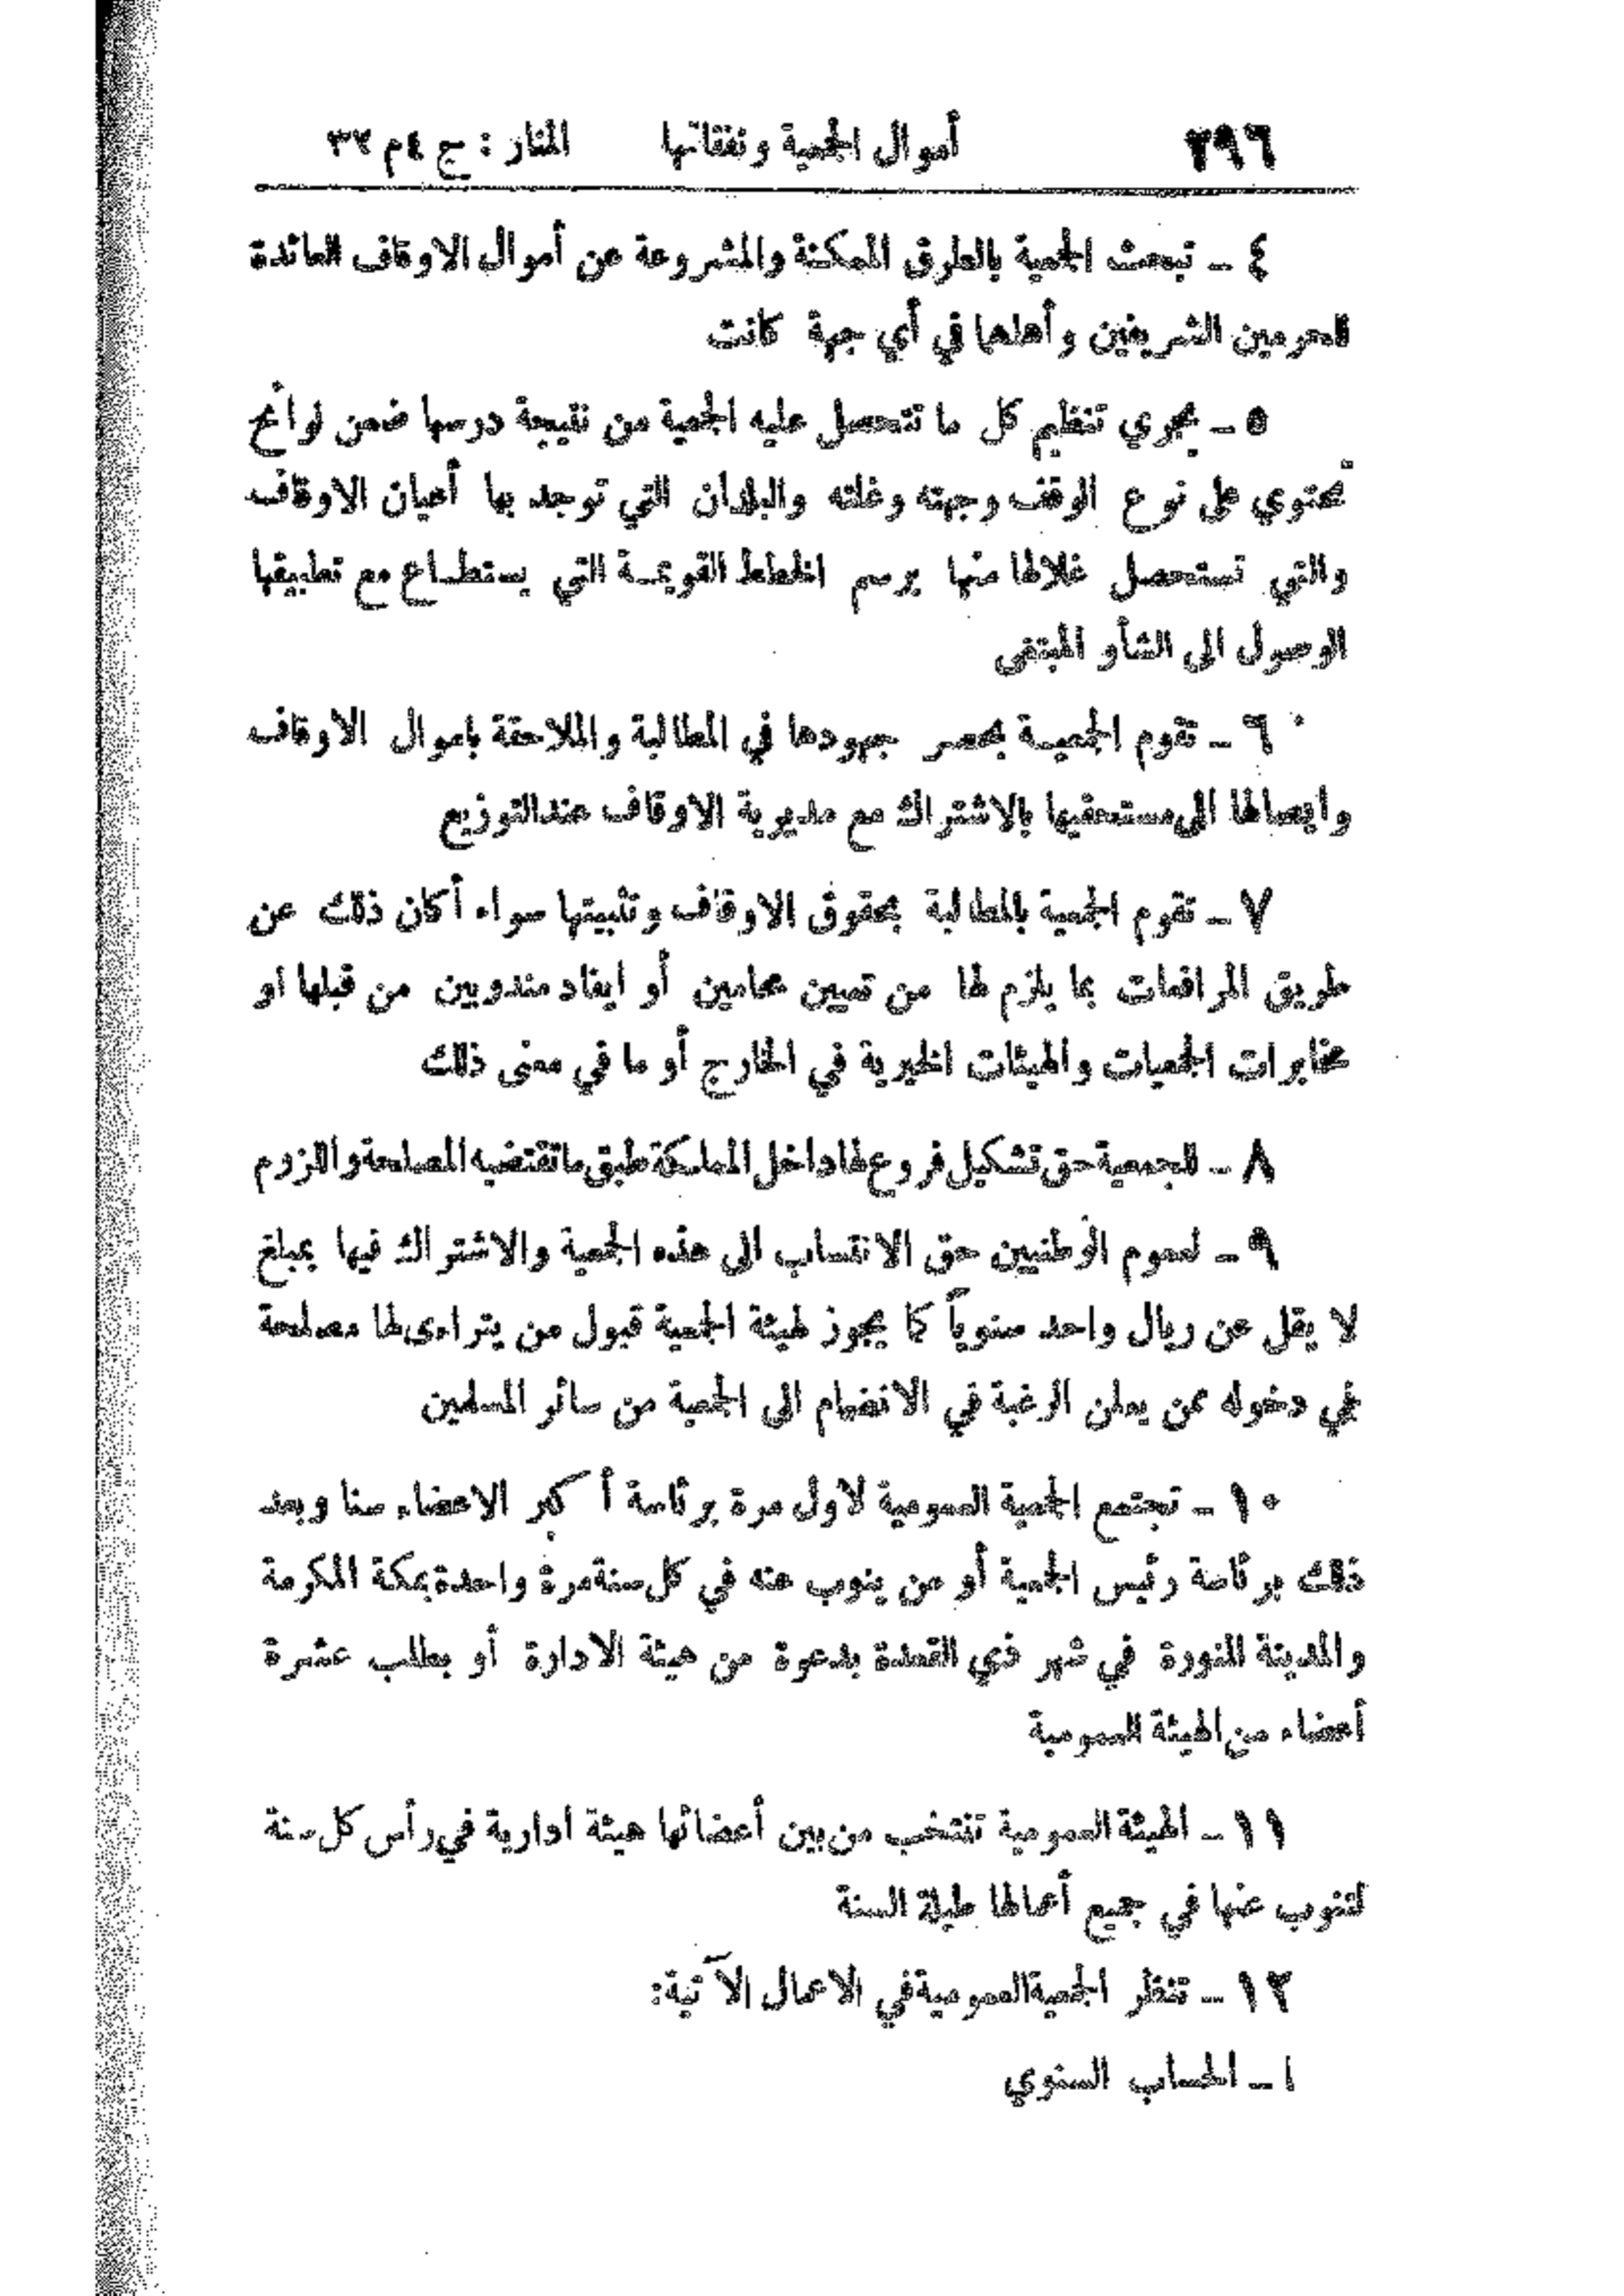 ٢٩٦ أموال الجمعية ونفقاتها المنار : ج ٤ م ٣٢
٤ ـ تبحث الجمعية بالطرق الممكنة والمشروعة عن أموال الاوقاف العائدة
للحرمين الشريفين وأهلها في أي جهة كانت
٥ ـ يجري تنظيم كل ما تتحصل عليه الجمعية من نتيجة درسها ضمن لوائح
تحتوي على نوع الوقف وجهته وغلته والبلدان التي توجد بها أعيان الاوقاف
والتي تستحصل غلالها منها برسم الخطط القويمة التي يستطاع مع تطبيقها
الوصول الى الشأو المبتغى
٦ ـ تقوم الجمعية بحصر جهودها في المطالبة والملاحقة باموال الاوقاف
وايصالها الى مستحقيها بالاشتراك مع مديرية الاوقاف عند التوزيع
٧ ـ تقوم الجمعية بالمطالبة بحقوق الاوقاف وتثبيتها سواء أكان ذلك عن
طريق المرافعات بما يلزم لها من تعيين محامين أو ايفاد مندوبين من قبلها او
مخابرات الجمعيات والهيئات الخيرية في الخارج أو ما في معنى ذلك
٨ ـ للجمعية حق تشكيل فروع لها داخل المملكة طبق ما تقتضيه المصلحة واللزوم
٩ ـ لعموم الوطنيين حق الانتساب الى هذه الجمعية والاشتراك فيها بمبلغ
لا يقل عن ريال واحد سنوياً كما يجوز لهيئة الجمعية قبول من يتراءى لها مصلحة
في دخوله ممن يعلن الرغبة في الانضمام الى الجمعية من سائر المسلمين
١٠ ـ تجتمع الجمعية العمومية لاول مرة برئاسة أكبر الاعضاء سنا وبعد
ذلك برئاسة رئيس الجمعية أو من ينوب عنه في كل سنة مرة واحدة بمكة المكرمة
والمدينة المنورة في شهر ذي القعدة بدعوة من هيئة الادارة أو بطلب عشرة
أعضاء من الهيئة العمومية
١١ ـ الهيئة العمومية تنتخب من بين أعضائها هيئة ادارية في رأس كل سنة
لتنوب عنها في جميع أعمالها طيلة السنة
١٢ ـ تنظر الجمعية العمومية في الاعمال الآتية:
١ ـ الحساب السنوي